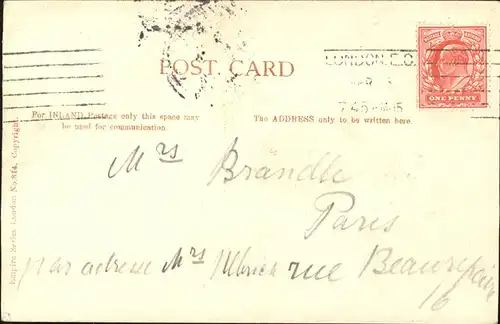 POST CARD
LONDON. E.C.
7.45
ONE PENNY
For INLAND Postage only this space may
be used for communication.
The ADDRESS only to be written here.
Empire Series London No. 314. Copyright.
Mrs Brändle
Paris
par adresse Mrs Ulbrich rue Beaurepaire
16